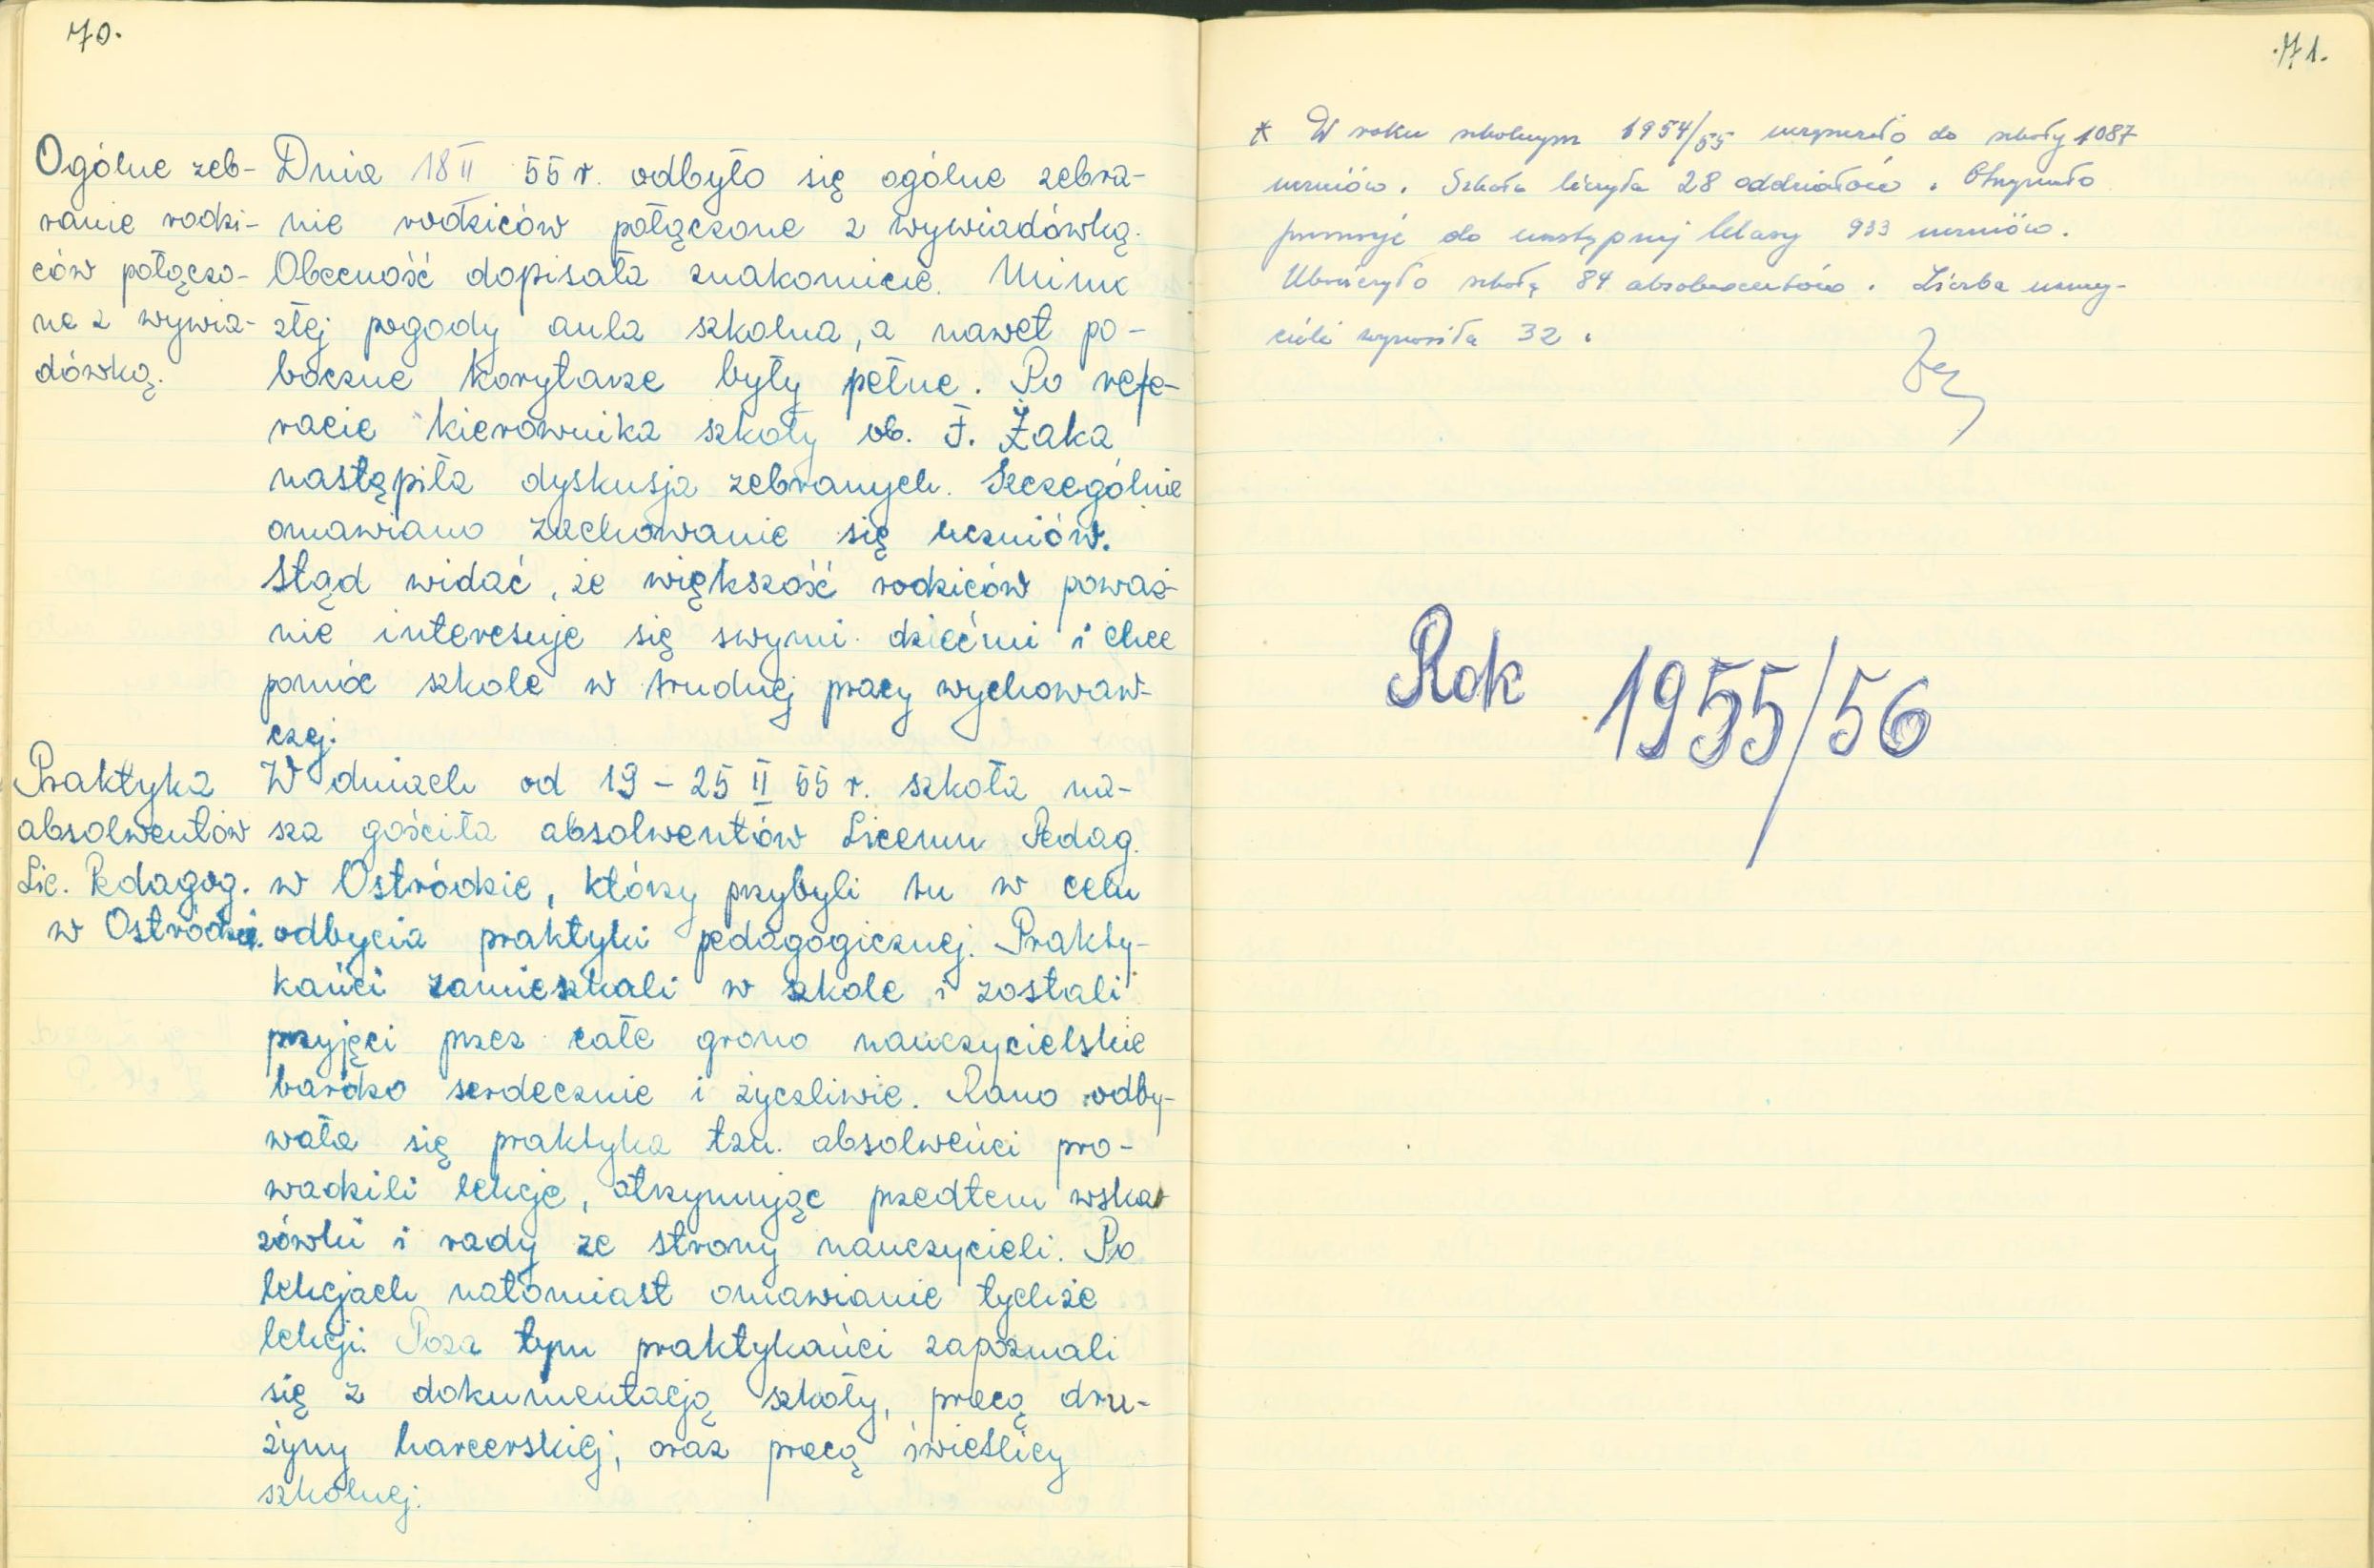 70.
Ogólne zeb-
ranie rodzi-
ców połączo-
ne z wywia-
dówką.
Dnia 18 II 55 r. odbyło się ogólne zebra-
nie rodziców połączone z wywiadówką.
Obecność dopisała znakomicie. Mimo
złej pogody aula szkolna, a nawet po-
boczne korytarze były pełne. Po refe-
racie kierownika szkoły ob. F. Żaka
nastąpiła dyskusja zebranych. Szczególnie
omawiano zachowanie się uczniów.
Stąd widać, że większość rodziców poważ-
nie interesuje się swymi dziećmi i chce
pomóc szkole w trudnej pracy wychowaw-
czej.
Praktyka
absolwentów
Lic. Pedagog.
w Ostródzie.
W dniach od 19 - 25 II 55 r. szkoła na-
sza gościła absolwentów Liceum Pedag.
w Ostródzie, którzy przybyli tu w celu
odbycia praktyki pedagogicznej. Prakty-
kańci zamieszkali w szkole i zostali
przyjęci przez całe grono nauczycielskie
bardzo serdecznie i życzliwie. Rano odby-
wała się praktyka tzn. absolwenci pro-
wadzili lekcje, otrzymując przedtem wska-
zówki i rady ze strony nauczycieli. Po
lekcjach natomiast omawianie tychże
lekcji. Poza tym praktykańci zapoznali
się z dokumentacją szkoły, pracą dru-
żyny harcerskiej, oraz pracą świetlicy
szkolnej.
71.
* W roku szkolnym 1954/55 uczęszczało do szkoły 1087
uczniów. Szkoła liczyła 28 oddziałów. Otrzymało
promocję do następnej klasy 933 uczniów.
Ukończyło szkołę 84 absolwentów. Liczba nauczy-
cieli wynosiła 32.
Rok 1955/56